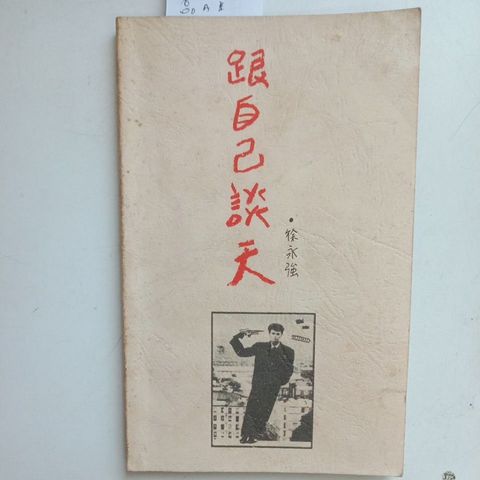 跟自己談天
·徐永強